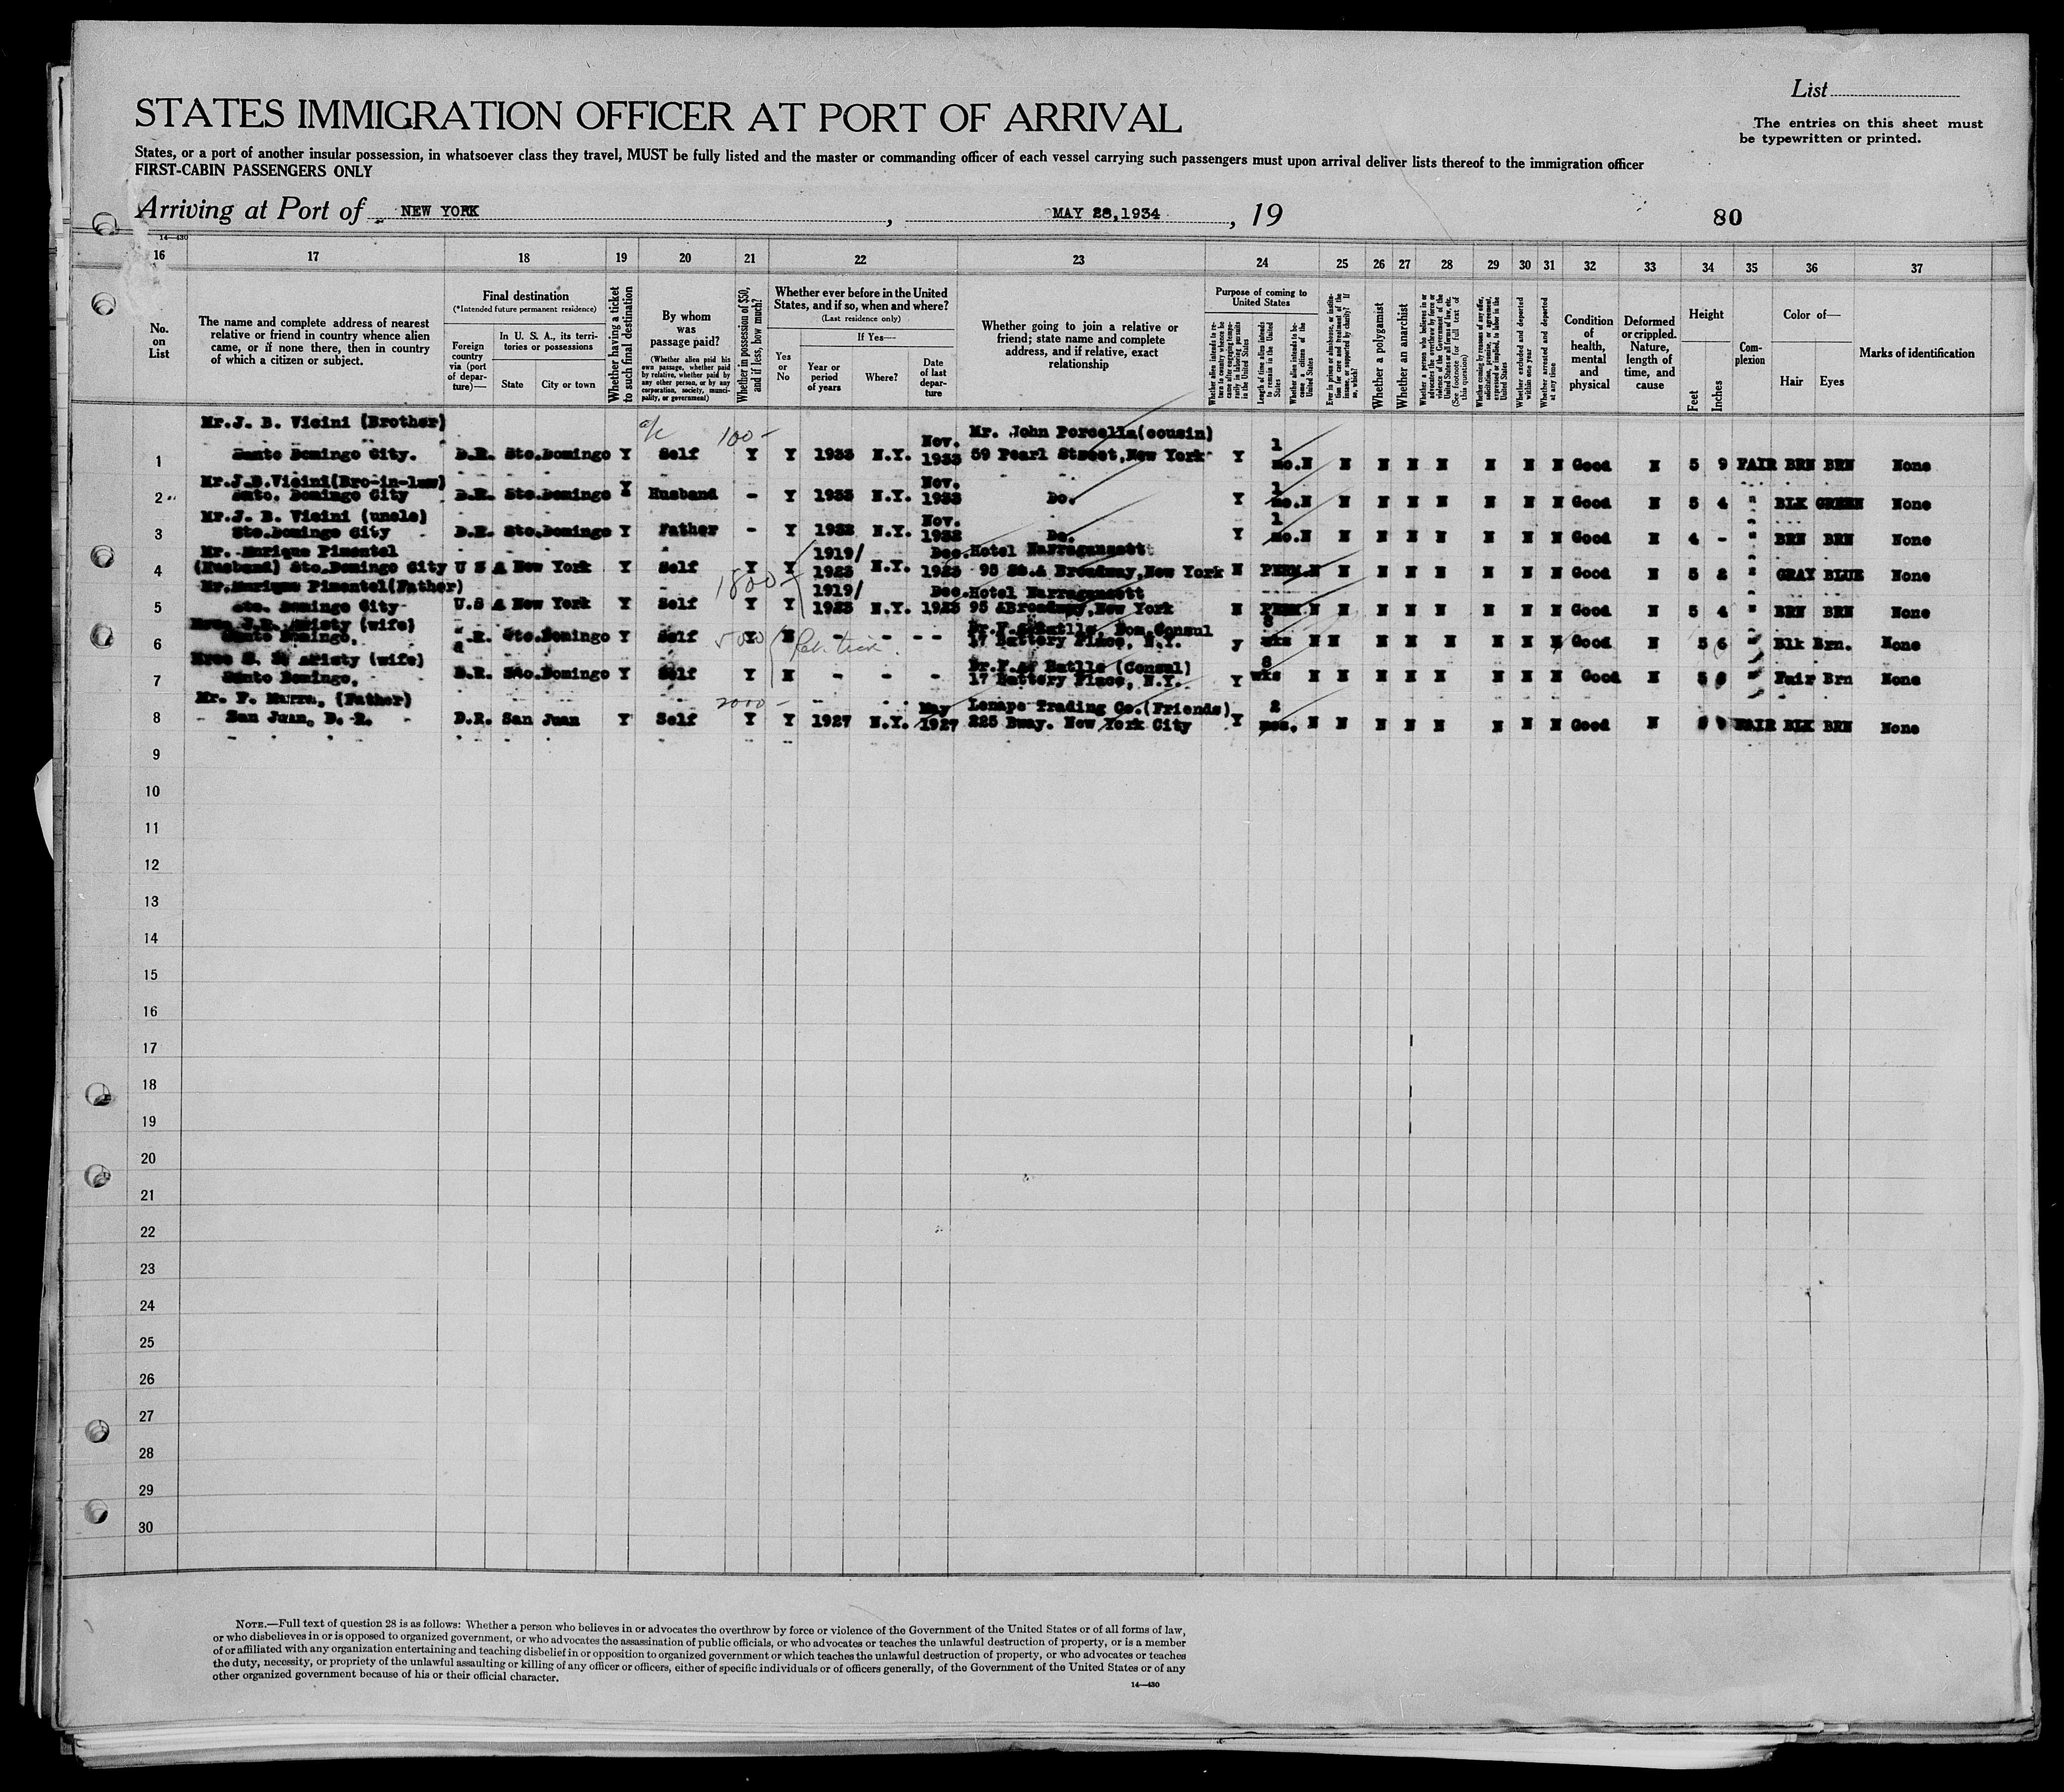 List
STATES IMMIGRATION OFFICER AT PORT OF ARRIVAL
The entries on this sheet must
be typewritten or printed.
States, or a port of another insular possession, in whatsoever class they travel, MUST be fully listed and the master or commanding officer of each vessel carrying such passengers must upon arrival deliver lists thereof to the immigration officer
FIRST-CABIN PASSENGERS ONLY
Arriving at Port of NEW YORK, MAY 28,1934, 19
80
14—430
16 17 18 19 20 21 22 23 24 25 26 27 28 29 30 31 32 33 34 35 36 37
No. on List
The name and complete address of nearest
relative or friend in country whence alien
came, or if none there, then in country
of which a citizen or subject.
Final destination
(*Intended future permanent residence)
Foreign country via (port of departure)—
In U. S. A., its territories or possessions
State City or town
Whether having a ticket to such final destination
By whom was passage paid?
(Whether alien paid his own passage, whether paid by relative, whether paid by any other person, or by any corporation, society, municipality, or government)
Whether in possession of $50, and if less, how much?
Whether ever before in the United
States, and if so, when and where?
(Last residence only)
Yes or No
If Yes—
Year or period of years
Where?
Date of last departure
Whether going to join a relative or
friend; state name and complete
address, and if relative, exact
relationship
Purpose of coming to United States
Length of time alien intends to remain in the United States
Whether alien intends to become a citizen of the United States
Whether a polygamist
Whether an anarchist
Whether excluded and deported within one year
Whether arrested and deported at any time
Condition of health, mental and physical
Deformed or crippled. Nature, length of time, and cause
Height
Feet Inches
Complexion
Color of—
Hair Eyes
Marks of identification
Mr.J. B. Vicini (Brother) 100- Nov. Mr. John Porcella(cousin) 1
1 Santo Domingo City. D.R. Sto.Domingo Y Self Y Y 1933 N.Y. 1933 59 Pearl Street,New York Y mo.N N N N N N N N Good N 5 9 FAIR BRN BRN None
Mr.J.B.Vicini(Bro-in-law) Nov. 1
2 Sato. Domingo City D.R. Sto.Domingo Y Husband - Y 1933 N.Y. 1933 Do. Y mo.N N N N N N N N Good N 5 4 " BLK GREEN None
Mr.J. B. Vicini (uncle) Nov. 1
3 Sto.Domingo City D.R. Sto.Domingo Y Father - Y 1932 N.Y. 1932 Do. Y mo.N N N N N N N N Good N 4 - " BRN BRN None
Mr. Enrique Pimentel 1919/ Dec. Hotel Narragansett
4 (Husband) Sto.Domingo City U S A New York Y Self Y Y 1923 N.Y. 1923 95 St.& Broadway,New York N PERM.N N N N N N N N Good N 5 2 " GRAY BLUE None
Mr.Enrique Pimentel(Father) 1800- 1919/ Dec. Hotel Narragansett
5 Sto. Domingo City U.S A New York Y Self Y Y 1923 N.Y. 1923 95 &Broadway,New York N PERM N N N N N N N N Good N 5 4 " BRN BRN None
J.R. Aristy (wife) 8
6 Santo Domingo, .R. Sto.Domingo Y Self Y N - - - - 17 Battery Place, N.Y. y wks N N N N N N N N Good N 5 6 " Blk Brn. None
Aristy (wife) Batlle (Consul) 8
7 Santo Domingo, D.R. Sto.Domingo Y Self Y N - - - 17 Battery Place, N.Y. Y wks N N N N N N N N Good N 5 " Fair Brn None
Mr. F. Marra, (Father) 2000- May Lenape Trading Co.(Friends) 2
8 San Juan, D. R. D.R. San Juan Y Self Y Y 1927 N.Y. 1927 225 Bway. New York City Y mos. N N N N N N N N Good N FAIR BLK BRN None
9
10
11
12
13
14
15
16
17
18
19
20
21
22
23
24
25
26
27
28
29
30
NOTE.—Full text of question 28 is as follows: Whether a person who believes in or advocates the overthrow by force or violence of the Government of the United States or of all forms of law,
or who disbelieves in or is opposed to organized government, or who advocates the assassination of public officials, or who advocates or teaches the unlawful destruction of property, or is a member
of or affiliated with any organization entertaining and teaching disbelief in or opposition to organized government or which teaches the unlawful destruction of property, or who advocates or teaches
the duty, necessity, or propriety of the unlawful assaulting or killing of any officer or officers, either of specific individuals or of officers generally, of the Government of the United States or of any
other organized government because of his or their official character.
14—430